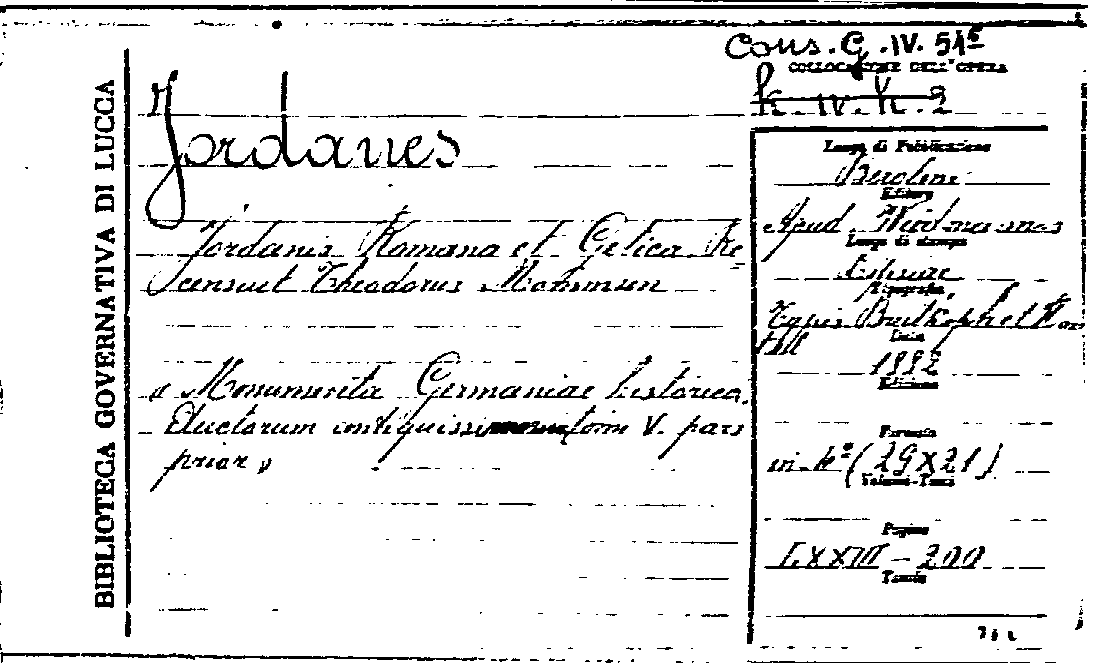 BIBLIOTECA GOVERNATIVA DI LUCCA
Cons. G. IV. 51
COLLOCAZIONE DELL'OPERA
k. IV. h. 2
Jordanes
Jordanis Romana et Getica Re=
censuit Theodorus Mommsen
« Monumenta Germaniae historica.
Auctorum antiquissimorum tom V. pars
prior »
Luogo di Pubblicazione
Berolini
Editore
Apud Weidmannos
Luogo di stampa
Lipsiae
Tipografia
Typis Breitkopf et Har
tell
Data
1882
Edizione
Formato
in-4° (29x21)
Volumi-Tomi
Pagine
LXXIII - 200
Tavole